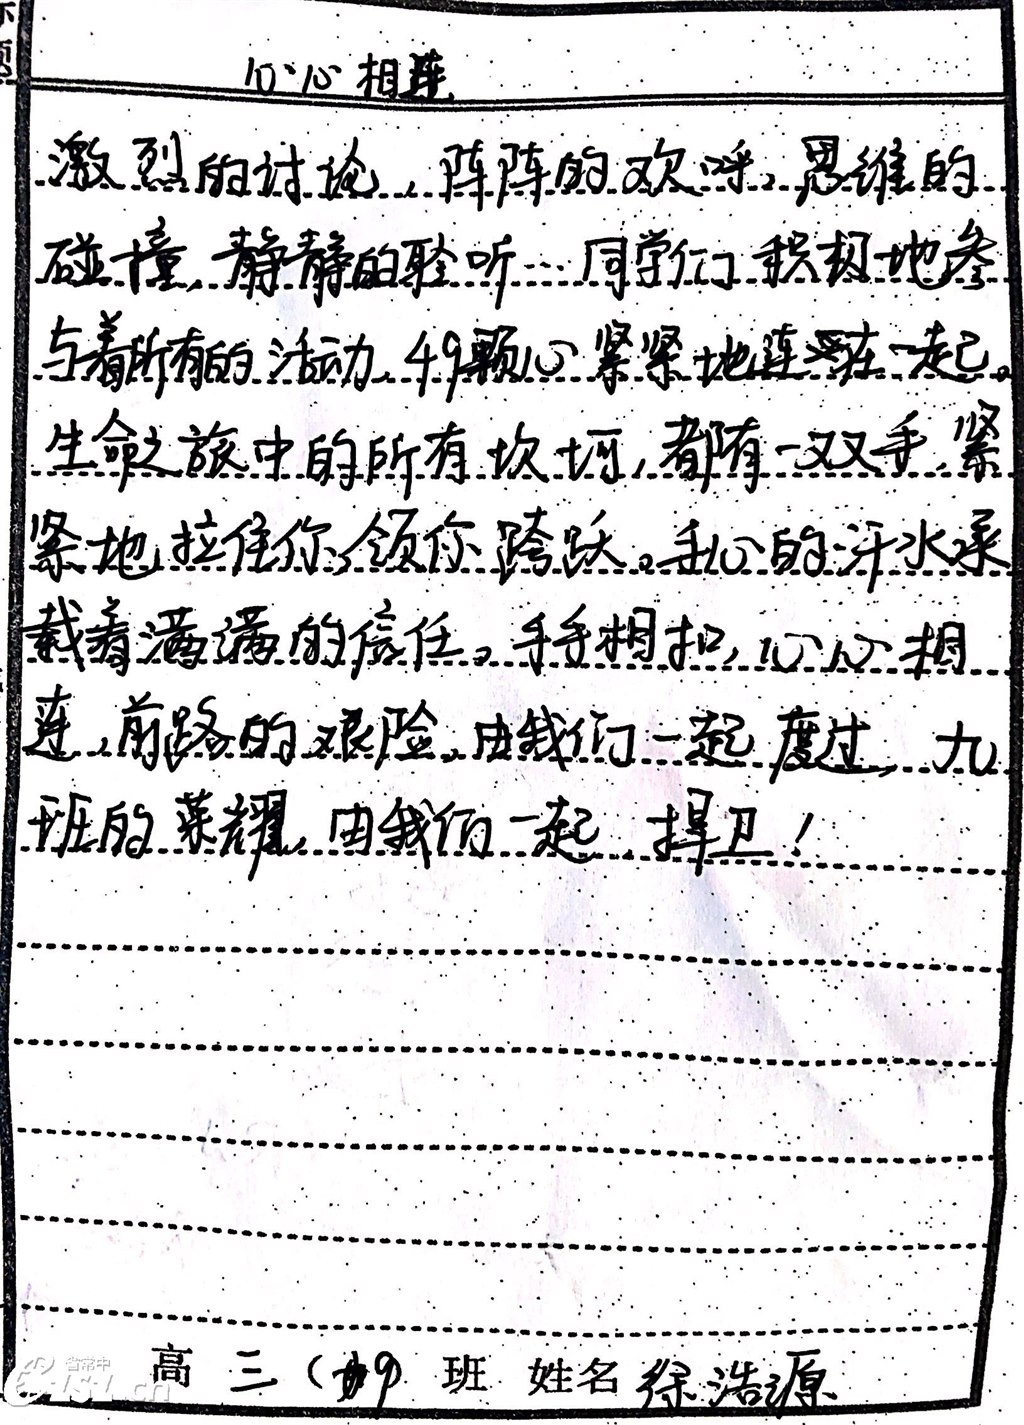 标题
心心相连
激烈的讨论,阵阵的欢呼,思维的
碰撞,静静的聆听…同学们积极地参
与着所有的活动,49颗心紧紧地连在一起。
生命之旅中的所有坎坷,都有一双手,紧
紧地拉住你,领你跨跃。手心的汗水承
载着满满的信任。手手相扣,心心相
连,前路的艰险,由我们一起度过,九
班的荣耀,由我们一起捍卫!
高三(9)班 姓名徐浩源
省常中